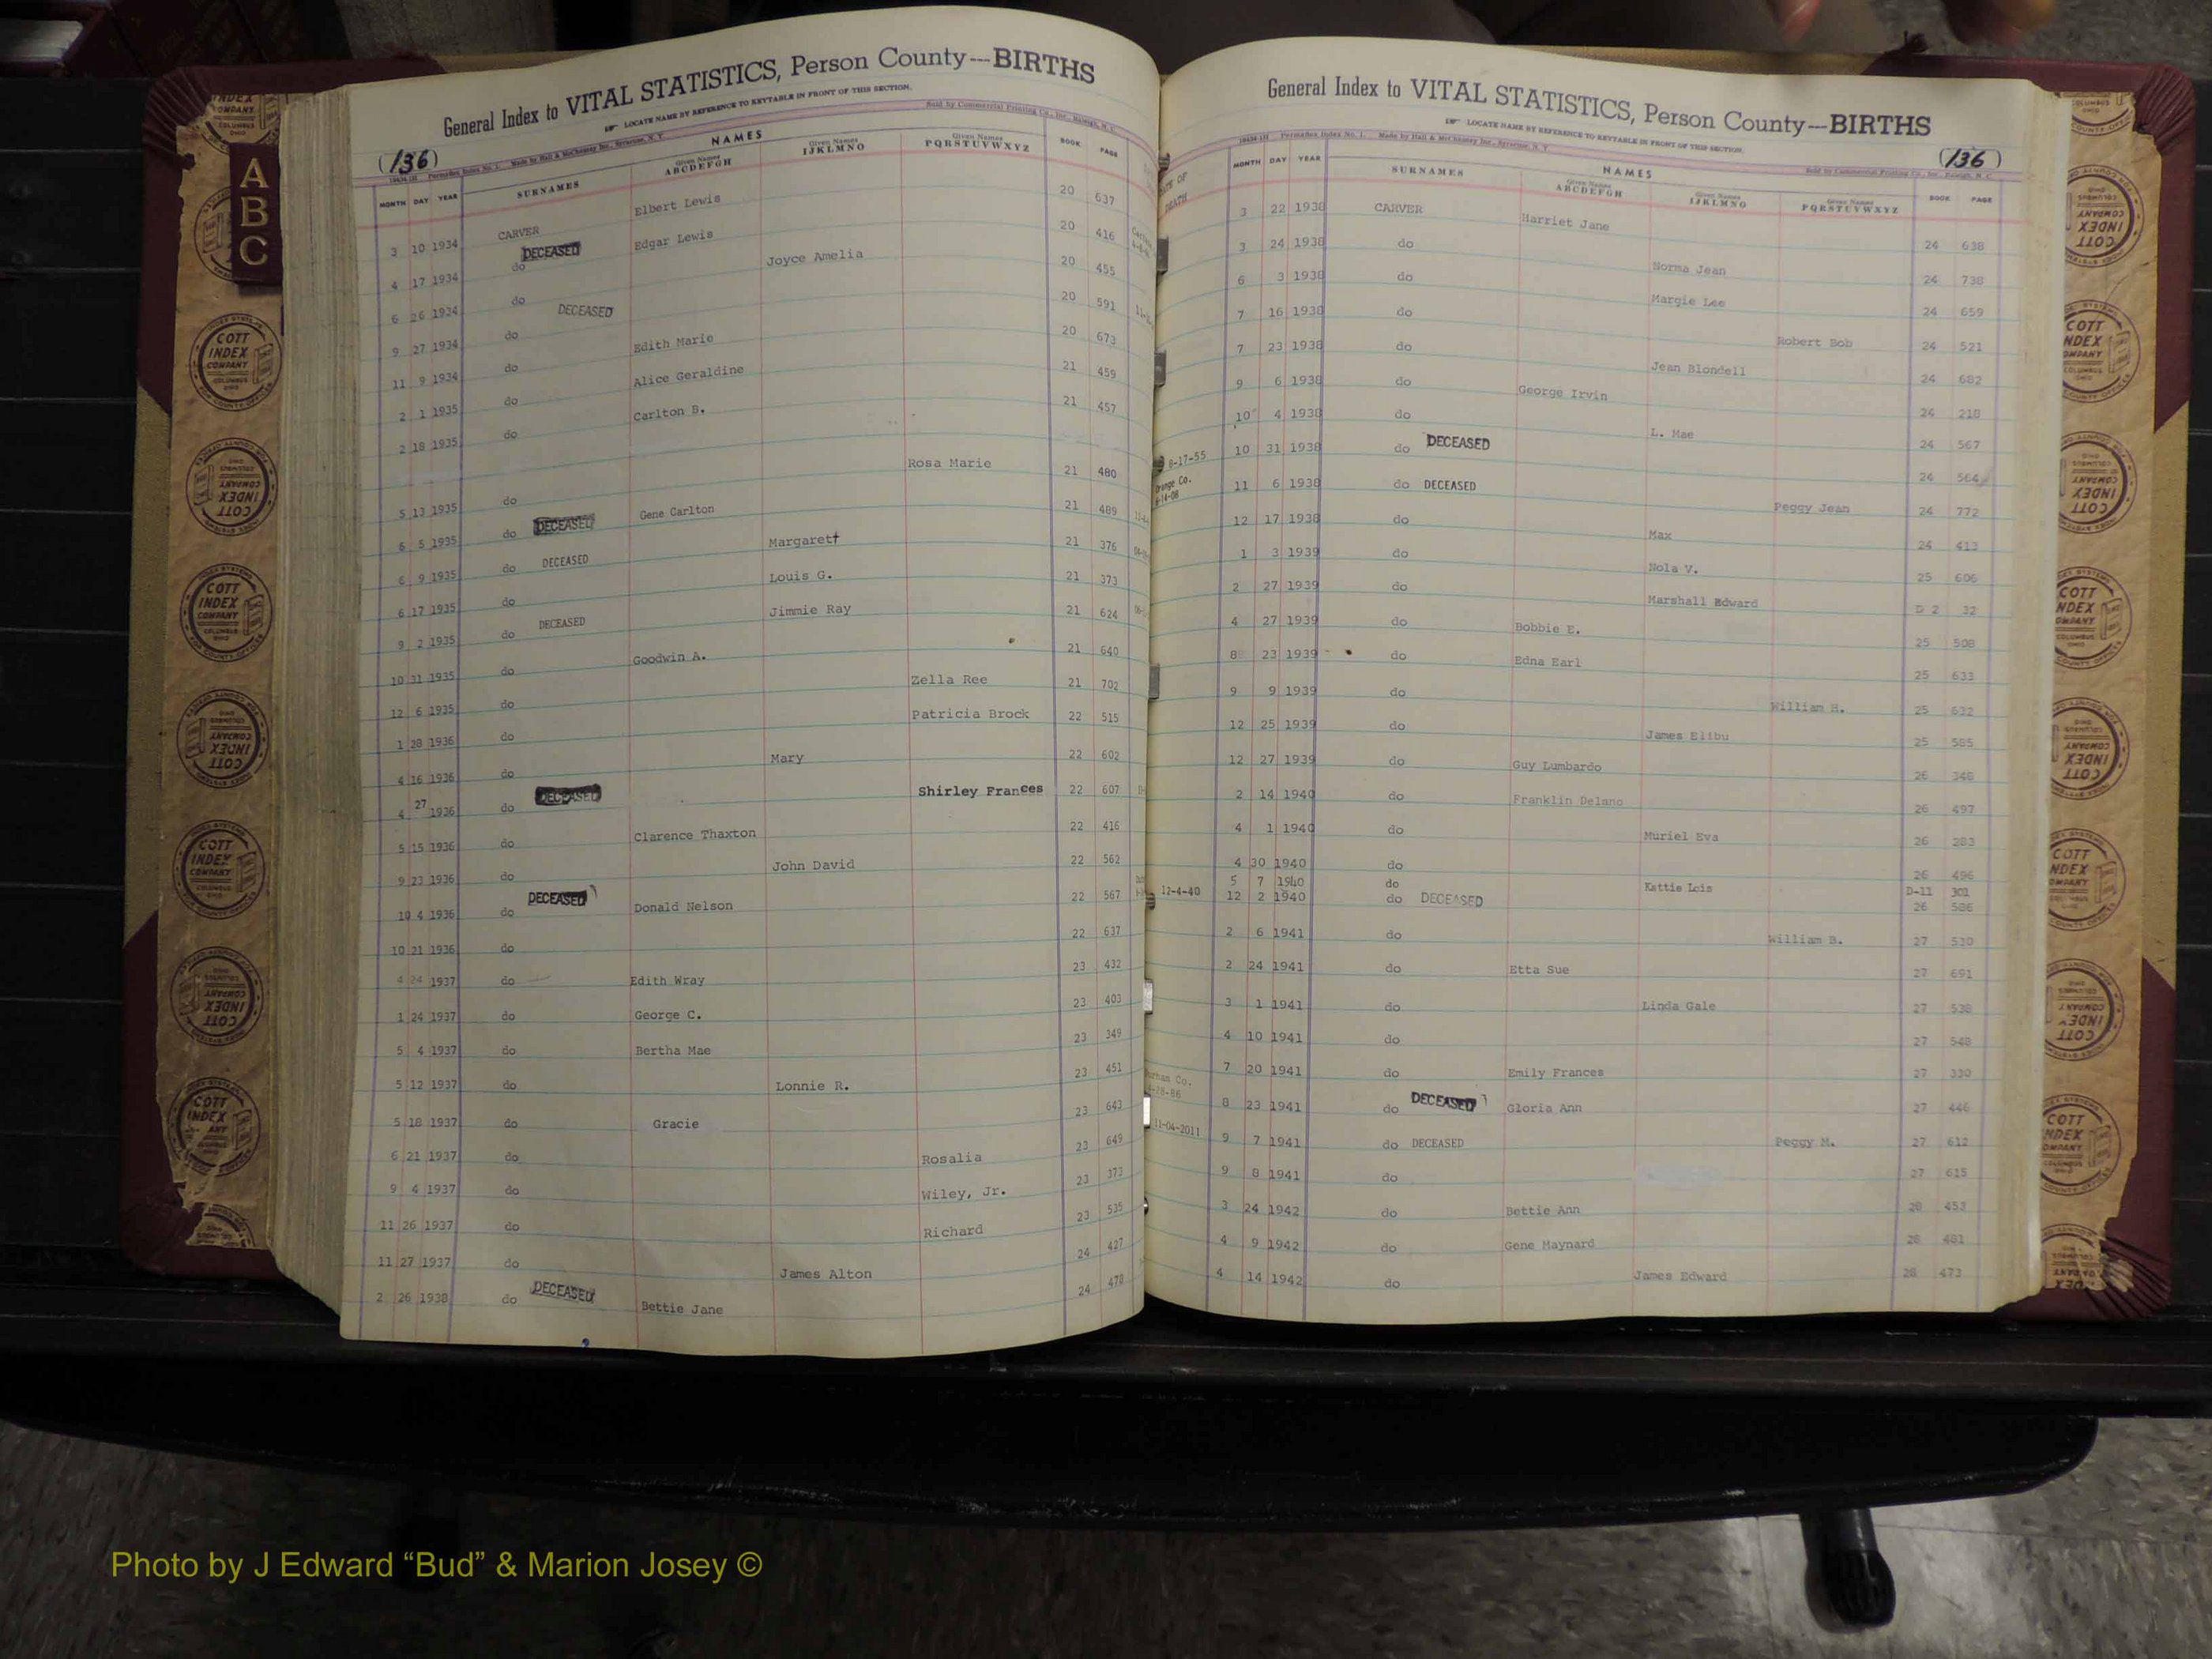 General Index to VITAL STATISTICS, Person County---BIRTHS
LOCATE NAME BY REFERENCE TO KEYTABLE IN FRONT OF THIS SECTION.
(136)
Made by Hall & McChesney Inc., Syracuse, N. Y. Sold by Commercial Printing Co., Inc., Raleigh, N. C.
NAMES
MONTH DAY YEAR SURNAMES Given Names ABCDEFGH Given Names IJKLMNO Given Names PQRSTUVWXYZ BOOK PAGE
3 10 1934 CARVER Elbert Lewis 20 637
4 17 1934 do DECEASED Edgar Lewis 20 416
6 26 1934 do Joyce Amelia 20 455
9 27 1934 do DECEASED 20 591
11 9 1934 do Edith Marie 20 673
2 1 1935 do Alice Geraldine 21 459
2 18 1935 do Carlton B. 21 457
5 13 1935 do Rosa Marie 21 480
6 5 1935 do DECEASED Gene Carlton 21 489
6 9 1935 do DECEASED Margarett 21 376
6 17 1935 do Louis G. 21 373
9 2 1935 do DECEASED Jimmie Ray 21 624
10 31 1935 do Goodwin A. 21 640
12 6 1935 do Zella Ree 21 702
1 28 1936 do Patricia Brock 22 515
4 16 1936 do Mary 22 602
4 27 1936 do DECEASED Shirley Frances 22 607
5 15 1936 do Clarence Thaxton 22 416
9 23 1936 do John David 22 562
10 4 1936 do DECEASED Donald Nelson 22 567
10 21 1936 do 22 637
4 24 1937 do Edith Wray 23 432
1 24 1937 do George C. 23 403
5 4 1937 do Bertha Mae 23 349
5 12 1937 do Lonnie R. 23 451
5 18 1937 do Gracie 23 643
6 21 1937 do Rosalia 23 649
9 4 1937 do Wiley, Jr. 23 373
11 26 1937 do Richard 23 535
11 27 1937 do James Alton 24 427
2 26 1938 do DECEASED Bettie Jane 24 478
General Index to VITAL STATISTICS, Person County---BIRTHS
LOCATE NAME BY REFERENCE TO KEYTABLE IN FRONT OF THIS SECTION.
(136)
Made by Hall & McChesney Inc., Syracuse, N. Y. Sold by Commercial Printing Co., Inc., Raleigh, N. C.
NAMES
DEATH MONTH DAY YEAR SURNAMES Given Names ABCDEFGH Given Names IJKLMNO Given Names PQRSTUVWXYZ BOOK PAGE
3 22 1938 CARVER Harriet Jane 24 638
3 24 1938 do Norma Jean 24 738
6 3 1938 do Margie Lee 24 659
7 16 1938 do Robert Bob 24 521
7 23 1938 do Jean Blondell 24 682
9 6 1938 do George Irvin 24 218
10 4 1938 do L. Mae 24 567
8-17-55 10 31 1938 do DECEASED 24 564
Orange Co. 11 6 1938 do DECEASED Peggy Jean 24 772
12 17 1938 do Max 24 413
1 3 1939 do Nola V. 25 606
2 27 1939 do Marshall Edward D 2 32
4 27 1939 do Bobbie E. 25 508
8 23 1939 do Edna Earl 25 633
9 9 1939 do William H. 25 632
12 25 1939 do James Elibu 25 585
12 27 1939 do Guy Lumbardo 26 348
2 14 1940 do Franklin Delano 26 497
4 1 1940 do Muriel Eva 26 283
4 30 1940 do 26 496
5 7 1940 do Kattie Lois D-11 301
12-4-40 12 2 1940 do DECEASED 26 586
2 6 1941 do William B. 27 530
2 24 1941 do Etta Sue 27 691
3 1 1941 do Linda Gale 27 538
4 10 1941 do 27 548
7 20 1941 do Emily Frances 27 330
Durham Co. 8 23 1941 do DECEASED Gloria Ann 27 446
11-04-2011 9 7 1941 do DECEASED Peggy M. 27 612
9 8 1941 do 27 615
3 24 1942 do Bettie Ann 28 453
4 9 1942 do Gene Maynard 28 481
4 14 1942 do James Edward 28 473
A
B
C
COTT INDEX COMPANY
Photo by J Edward “Bud” & Marion Josey ©